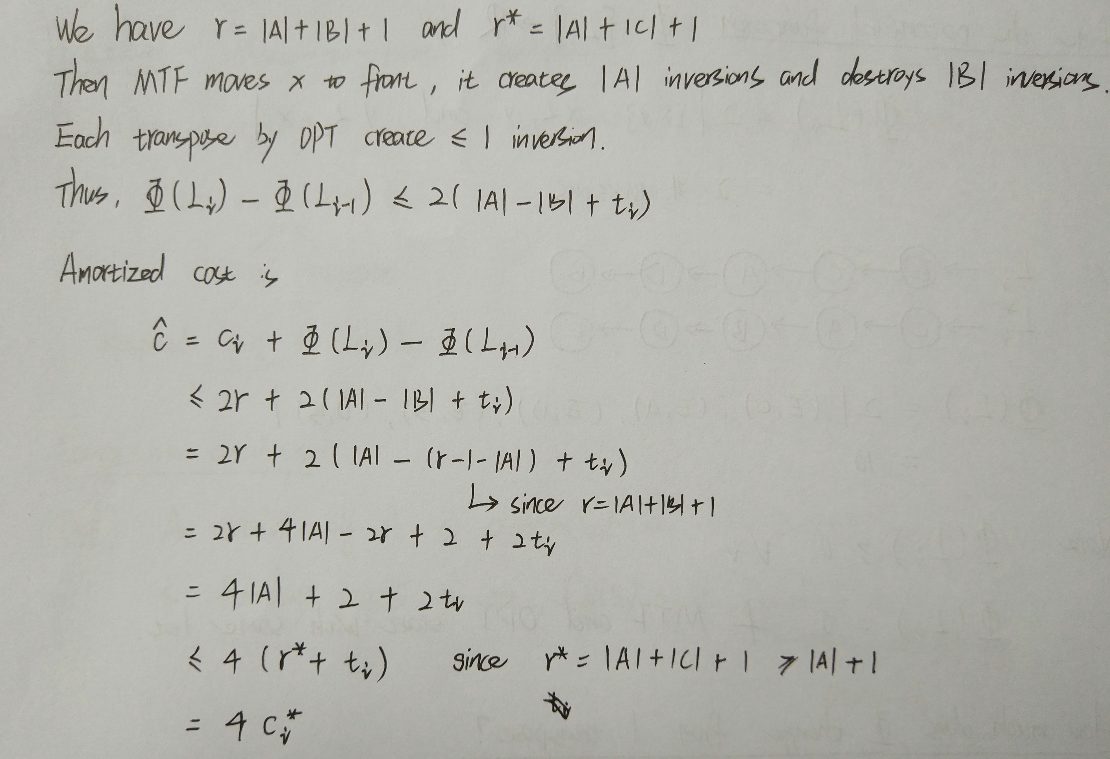 We have r = |A|+|B|+1 and r* = |A|+|C|+1
Then MTF moves x to front, it creates |A| inversions and destroys |B| inversions.
Each transpose by OPT create ≤ 1 inversion.
Thus, Φ(Li) - Φ(Li-1) ≤ 2(|A|-|B|+ti)
Amortized cost is
ĉ = ci + Φ(Li) - Φ(Li-1)
≤ 2r + 2(|A| - |B| + ti)
= 2r + 2(|A| - (r-1-|A|) + ti)
↳ since r=|A|+|B|+1
= 2r + 4|A| - 2r + 2 + 2ti
= 4|A| + 2 + 2ti
≤ 4(r*+ ti) since r* = |A|+|C|+1 ≥ |A|+1
= 4ci*